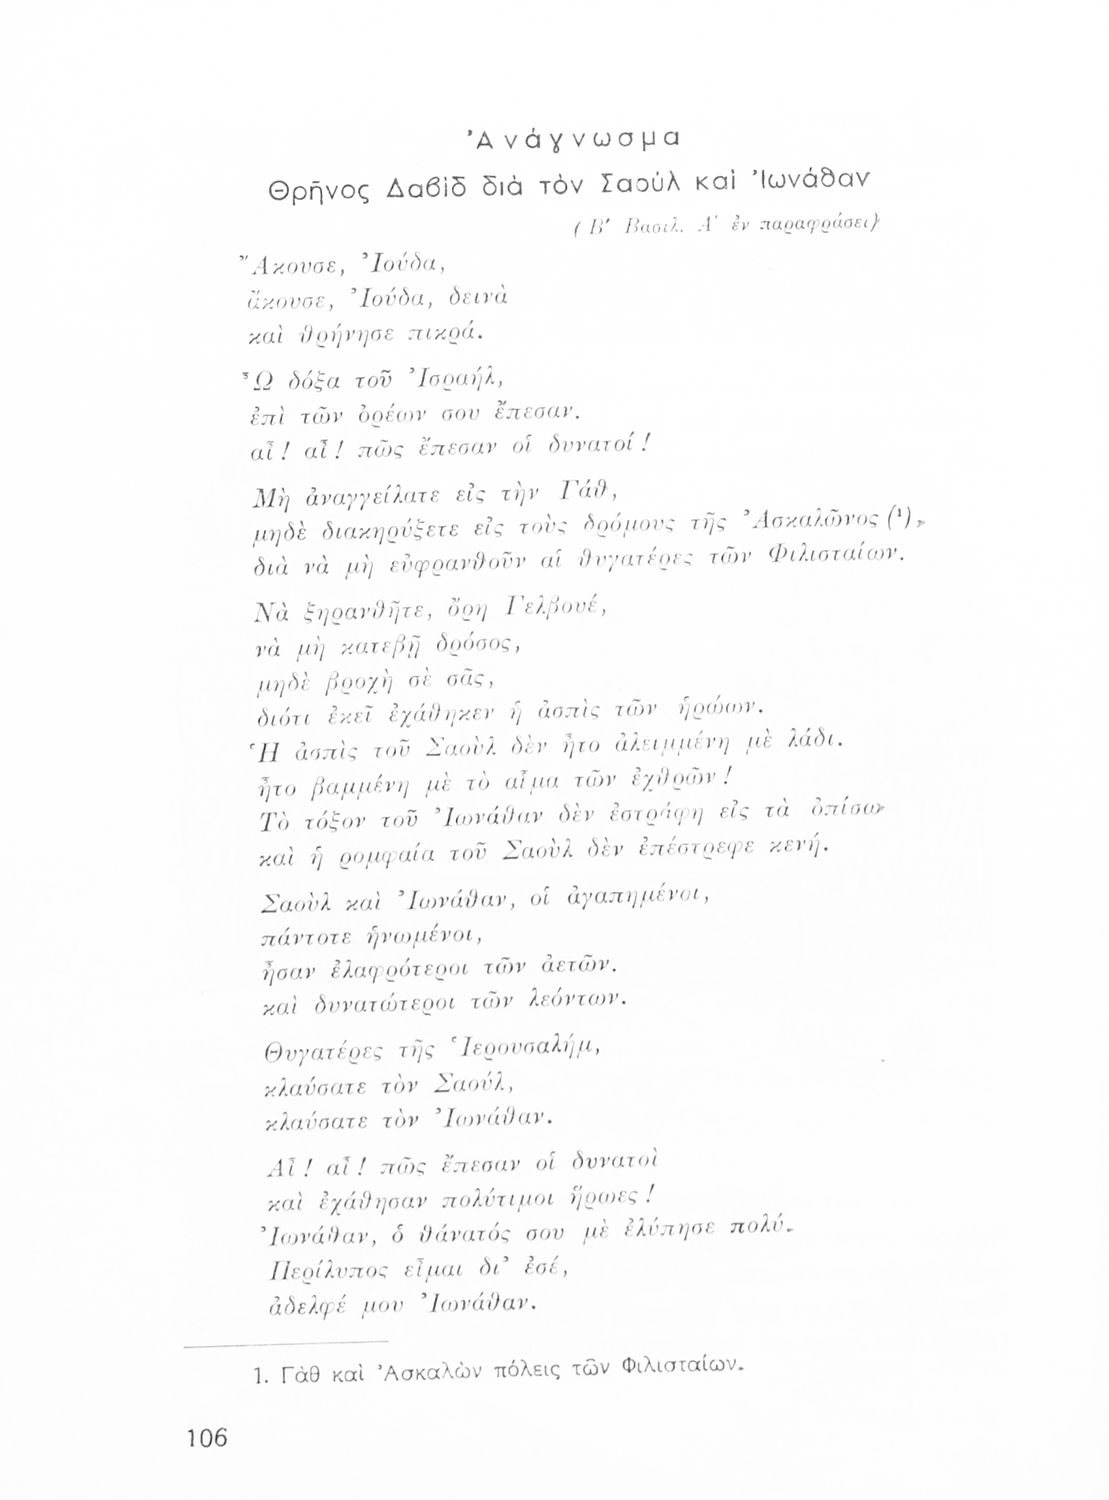 Ἀνάγνωσμα
Θρῆνος Δαβὶδ διὰ τὸν Σαούλ καὶ Ἰωνάθαν
(Β′ Βασιλ. Α′ ἐν παραφράσει)
Ἄκουσε, Ἰούδα,
ἄκουσε, Ἰούδα, δεινὰ
καὶ θρήνησε πικρά.
Ὦ δόξα τοῦ Ἰσραήλ,
ἐπὶ τῶν ὀρέων σου ἔπεσαν.
αἶ! αἶ! πῶς ἔπεσαν οἱ δυνατοί!
Μὴ ἀναγγείλατε εἰς τὴν Γάθ,
μηδὲ διακηρύξετε εἰς τοὺς δρόμους τῆς Ἀσκαλῶνος (¹),
διὰ νὰ μὴ εὐφρανθοῦν αἱ θυγατέρες τῶν Φιλισταίων.
Νὰ ξηρανθῆτε, ὄρη Γελβουέ,
νὰ μὴ κατεβῇ δρόσος,
μηδὲ βροχὴ σὲ σᾶς,
διότι ἐκεῖ ἐχάθηκεν ἡ ἀσπὶς τῶν ἡρώων.
Ἡ ἀσπὶς τοῦ Σαοὺλ δὲν ἦτο ἀλειμμένη μὲ λάδι.
ἦτο βαμμένη μὲ τὸ αἷμα τῶν ἐχθρῶν!
Τὸ τόξον τοῦ Ἰωνάθαν δὲν ἐστράφη εἰς τὰ ὀπίσω
καὶ ἡ ρομφαία τοῦ Σαοὺλ δὲν ἐπέστρεφε κενή.
Σαοὺλ καὶ Ἰωνάθαν, οἱ ἀγαπημένοι,
πάντοτε ἡνωμένοι,
ἦσαν ἐλαφρότεροι τῶν ἀετῶν.
καὶ δυνατώτεροι τῶν λεόντων.
Θυγατέρες τῆς Ἱερουσαλήμ,
κλαύσατε τὸν Σαούλ,
κλαύσατε τὸν Ἰωνάθαν.
Αἶ! αἶ! πῶς ἔπεσαν οἱ δυνατοὶ
καὶ ἐχάθησαν πολύτιμοι ἥρωες!
Ἰωνάθαν, ὁ θάνατός σου μὲ ἐλύπησε πολύ.
Περίλυπος εἶμαι δι' ἐσέ,
ἀδελφέ μου Ἰωνάθαν.
1. Γὰθ καὶ Ἀσκαλὼν πόλεις τῶν Φιλισταίων.
106